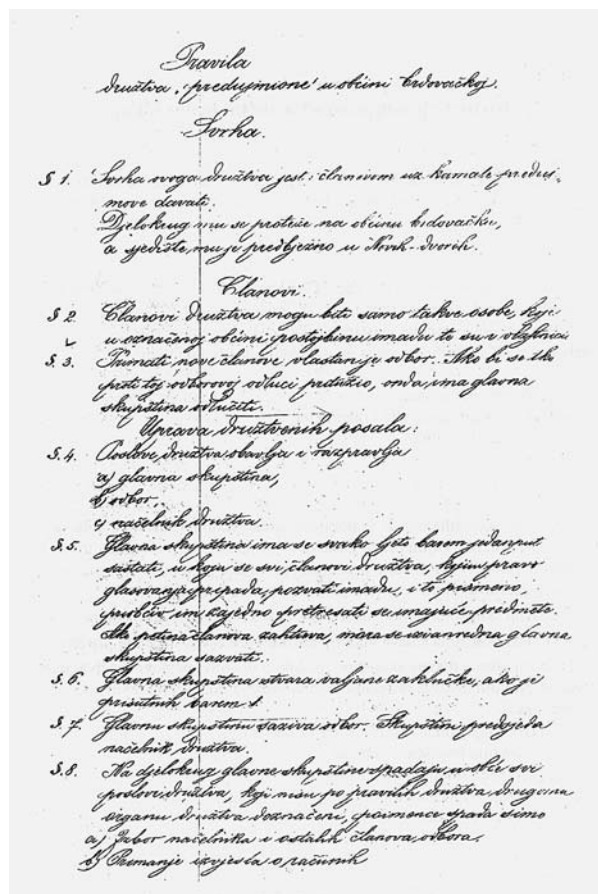 Pravila
družtva „predujmione‟ u občini Brdovačkoj.
Svrha.
§ 1. Svrha ovoga družtva jest: članovom uz kamate preduj-
move davati.
Djelokrug mu se proteže na občinu brdovačku,
a sjedište mu je predbježno u Novih-dvorih.
Članovi.
§ 2. Članovi družtva mogu biti samo takve osobe, koji
u označenoj občini postojbinu imadu te su
§ 3. Primati nove članove vlastan je odbor. Ako bi se tko
proti toj odborovoj odluci pritužio, onda ima glavna
skupština odlučiti.
Uprava družtvenih posala:
§. 4. Poslove družtva obavlja i razpravlja
a) glavna skupština,
b) odbor,
c) načelnik družtva.
§. 5. Glavna skupština ima se svako ljeto barem jedanput
sastati, u koju se svi članovi družtva, kojim pravo
glasovanja pripada, pozvati imadu, i to pismeno,
priobćiv im zajedno pretresati se imajuće predmete.
Ako petina članova zahtieva, mora se izvanredna glavna
skupština sazvati.
§. 6. Glavna skupština stvara valjane zaključke, ako je
prisutnih barem
§. 7. Glavnu skupštinu saziva odbor. Skupštini predsjeda
načelnik družtva.
§. 8. Na djelokrug glavne skupštine spadaju u obće svi
poslovi družtva, koji nisu po pravilih družtva drugomu
organu družtva doznačeni, poimence spada simo
a) Izbor načelnika i ostalih članova odbora.
b) Primanje izvješća o računih